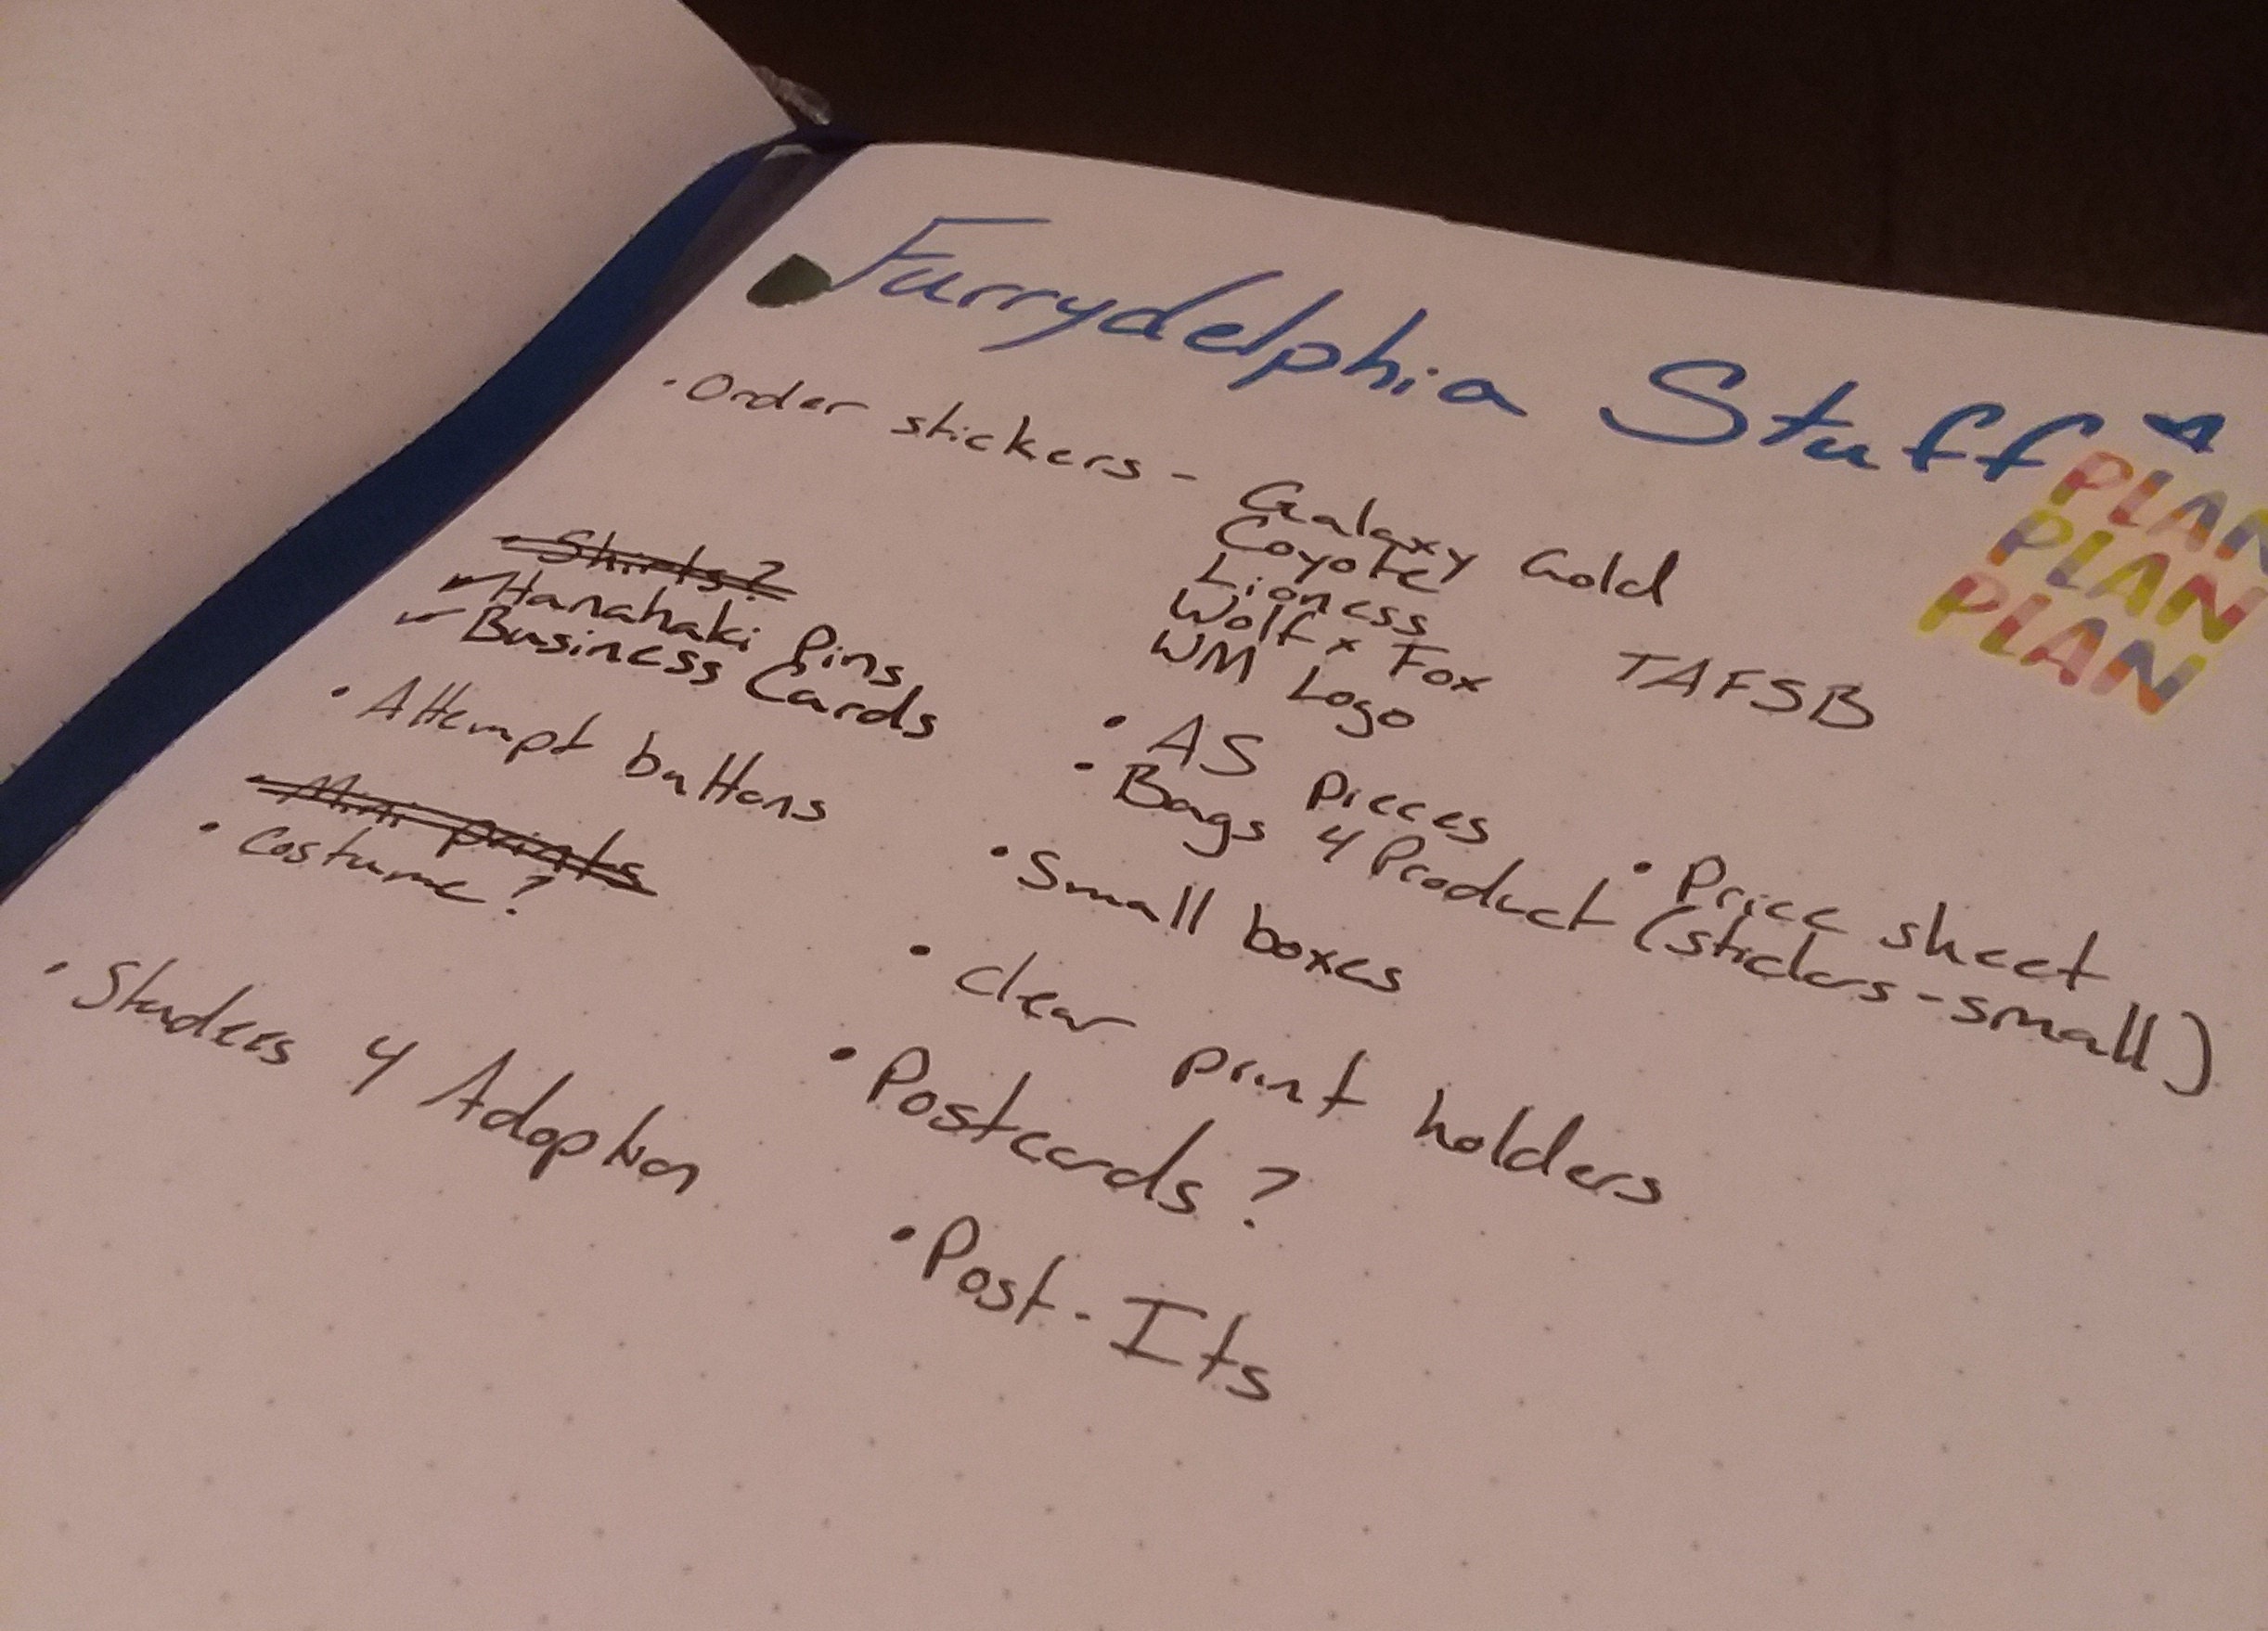 Furrydelphia Stuff
PLAN
PLAN
PLAN
• Order stickers - Galaxy Gold
Coyote
Lioness
Wolf x Fox
WM Logo
TAFSB
• Shirts?
✓ Hanahaki Pins
✓ Business Cards
• Attempt buttons
• Mini prints
• Costume?
• 4 Adoption
• AS pieces
• Bags 4 Product (stickers-small)
• Price sheet
• Small boxes
• clear print holders
• Postcards?
• Post-Its